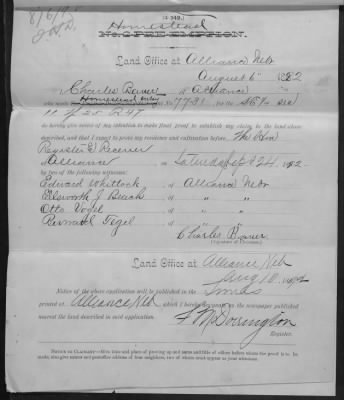 (4-348.)
Homestead
No. 1-PRE-EMPTION.
Land Office at Alliance Neb
August 6" 1892
Charles Bauer of Alliance
who made Homestead Entry No. 7731 for the SE¼ Sec
do hereby give notice of my intention to make final proof to establish my claim to the land above
described, and that I expect to prove my residence and cultivation before The Hon
Register & Receiver
Alliance on Saturday Sept 24 1892
by two of the following witnesses:
Edward Whitlock of Alliance Nebr
Ellsworth J Beach of " "
Otto Vogel of " "
Tegel of " "
Charles Bauer
(Signature of Claimant.)
Land Office at Alliance Neb
Aug 10 1892
Notice of the above application will be published in the Times
printed at Alliance Neb which I hereby designate as the newspaper published
nearest the land described in said application.
Dorrington
Register.
NOTICE TO CLAIMANT.—Give time and place of proving up and name and title of officer before whom the proof is to be
made, also give names and postoffice address of four neighbors, two of whom must appear as your witnesses.